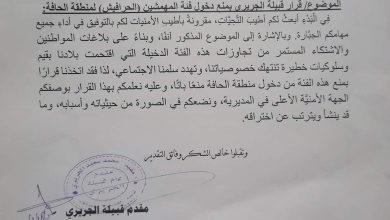 الموضوع/ قرار قبيلة الجريري بمنع دخول فئة المهمشين (الحرافيش) لمنطقة الحافة:
في البَدْءِ أبعثُ لكم أطيبَ التَّحِيَّات، مقرونةً بأطيب الأمنيات لكم بالتوفيق في أداء جميع
مهامكم الجبَّارة. وبالإشارة إلى الموضوع المذكور آنفًا، وبناءً على بلاغات المواطنين
والاشتكاء المستمر من تجاوزات هذه الفئة الدخيلة التي اقتحمت بلادنا بقيم
وسلوكيات خطيرة تنتهك خصوصياتنا، وتهدد سلمنا الاجتماعي، لذا فقد اتخذنا قرارًا
بمنع هذه الفئة من دخول منطقة الحافة منعًا باتًّا، وعليه نعلمكم بهذا القرار بوصفكم
الجهة الأمنيَّة الأعلى في المديرية، ونضعكم في الصورة من حيثياته وأسبابه، وما
قد ينشأ ويترتب عن اختراقه.
وتقبلوا خالص الشكر وفائق التقدير
مقدم قبيلة الجريري